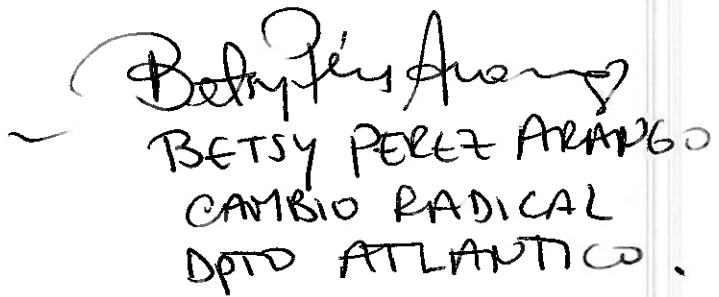 Betsy Pérez Arango
BETSY PEREZ ARANGO
CAMBIO RADICAL
DPTO ATLANTICO.